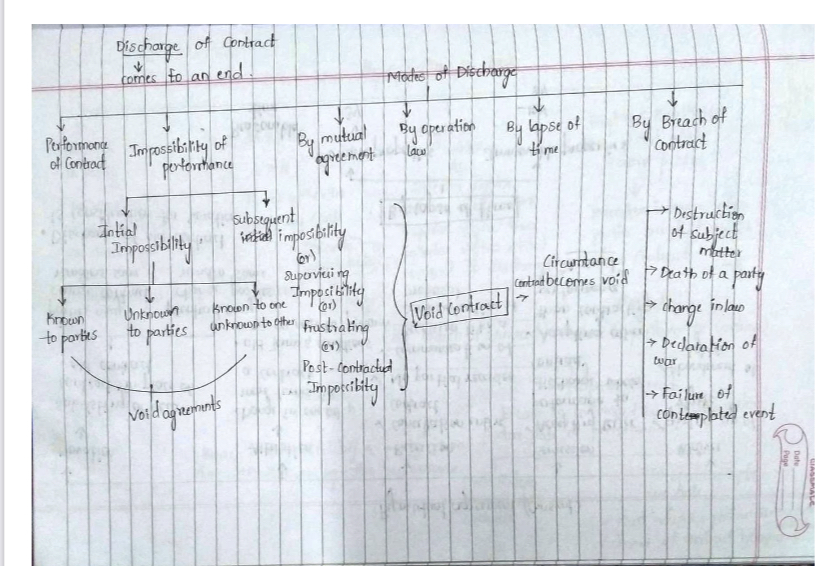 Discharge of Contract
↓
comes to an end.
Modes of Discharge
Performance
of Contract
Impossibility of
performance
By mutual
agreement
By operation
law
By lapse of
time
By Breach of
Contract
Intial
Impossibility
Subsequent
intial imposibility
(or)
Supervicing
Impocibility
(or)
frustrating
(or)
Post-contracted
Impossibity
Known
to parties
Unknown
to parties
Known to one
unknown to other
Void agreements
Void Contract
→
Circumtance
contract becomes void
→ Destruction
of subject
matter
→ Death of a party
→ change in law
→ Declaration of
war
→ Failure of
contemplated event
classmate
Date
Page